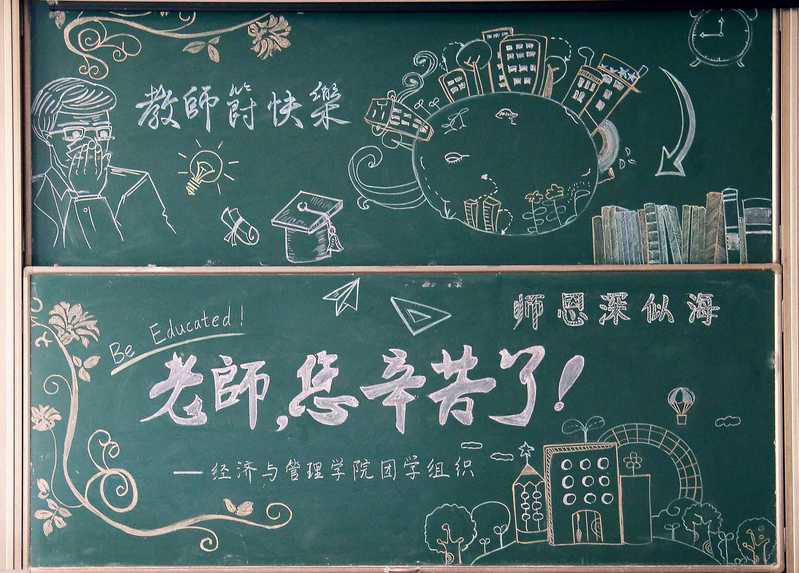 教師節快樂
师恩深似海
Be Educated!
老師,您辛苦了!
—经济与管理学院团学组织